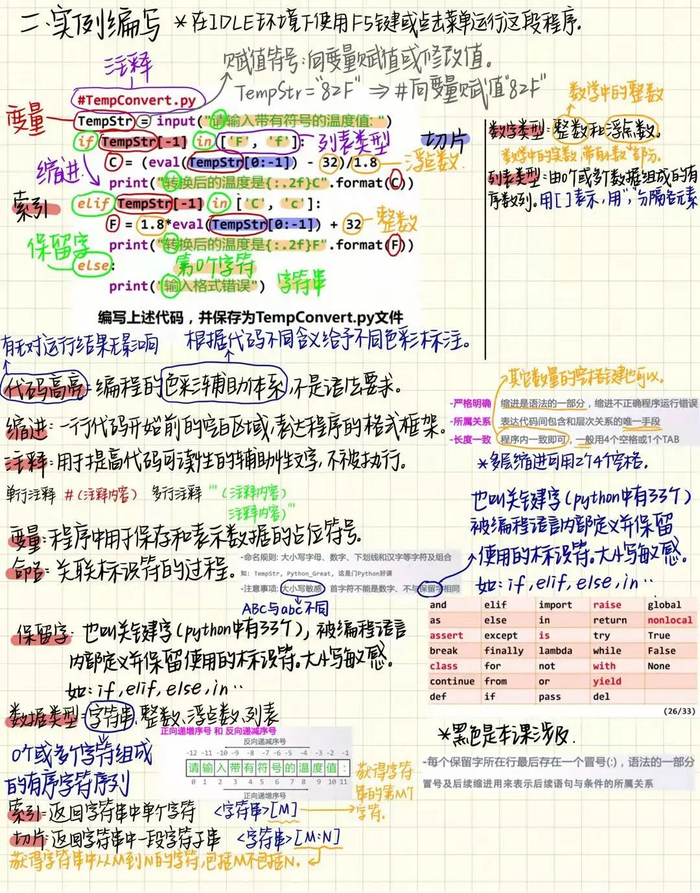 二、实例编写 *在IDLE环境下使用F5键或点击菜单运行这段程序.
注释
赋值符号:向变量赋值或修改值。
TempStr="82F" ⇒ #向变量赋值"82F"
变量
#TempConvert.py
TempStr = input("请输入带有符号的温度值: ")
if TempStr[-1] in ['F', 'f']:
列表类型
切片
C = (eval(TempStr[0:-1]) - 32)/1.8
浮点数
缩进
print("转换后的温度是{:.2f}C".format(C))
索引
elif TempStr[-1] in ['C', 'c']:
F = 1.8*eval(TempStr[0:-1]) + 32
整数
保留字
print("转换后的温度是{:.2f}F".format(F))
else:
第0个字符
print("输入格式错误")
字符串
编写上述代码，并保存为TempConvert.py文件
数学中的整数
数字类型:整数和浮点数。
数学中的实数,带有小数部分.
列表类型:由0个或多个数据组成的有
序数列.用[ ]表示,用","分隔各元素
有无对运行结果无影响
根据代码不同含义给予不同色彩标注。
代码高亮:编程的色彩辅助体系,不是语法要求。
缩进:一行代码开始前的空白区域,表达程序的格式框架。
注释:用于提高代码可读性的辅助性文字,不被执行。
单行注释 #(注释内容) 多行注释 '''(注释内容)
注释内容)'''
其它数量的空格键也可以.
-严格明确 缩进是语法的一部分，缩进不正确程序运行错误
-所属关系 表达代码间包含和层次关系的唯一手段
-长度一致 程序内一致即可，一般用4个空格或1个TAB
*多层缩进可用2个4个空格.
变量:程序中用于保存和表示数据的占位符号.
命名:关联标识符的过程.
-命名规则: 大小写字母、数字、下划线和汉字等字符及组合
如: TempStr, Python_Great, 这是门Python好课
-注意事项: 大小写敏感、首字符不能是数字、不与保留字相同
ABC与abc不同
也叫关键字(python中有33个)
被编程语言内部定义并保留
使用的标识符。大小写敏感.
如:if,elif,else,in··
保留字: 也叫关键字(python中有33个),被编程语言
内部定义并保留使用的标识符。大小写敏感.
如:if,elif,else,in··
and elif import raise global
as else in return nonlocal
assert except is try True
break finally lambda while False
class for not with None
continue from or yield
def if pass del
(26/33)
*黑色是本课涉及.
-每个保留字所在行最后存在一个冒号(:)，语法的一部分
冒号及后续缩进用来表示后续语句与条件的所属关系
数据类型:字符串、整数、浮点数、列表
0个或多个字符组成
的有序字符序列
正向递增序号 和 反向递减序号
反向递减序号
-12 -11 -10 -9 -8 -7 -6 -5 -4 -3 -2 -1
请输入带有符号的温度值:
0 1 2 3 4 5 6 7 8 9 10 11
正向递增序号
索引:返回字符串中单个字符 <字符串>[M]
获得字符
串的第M个
字符.
切片:返回字符串中一段字符子串 <字符串>[M:N]
获得字符串中从M到N的字符,包括M不包括N.